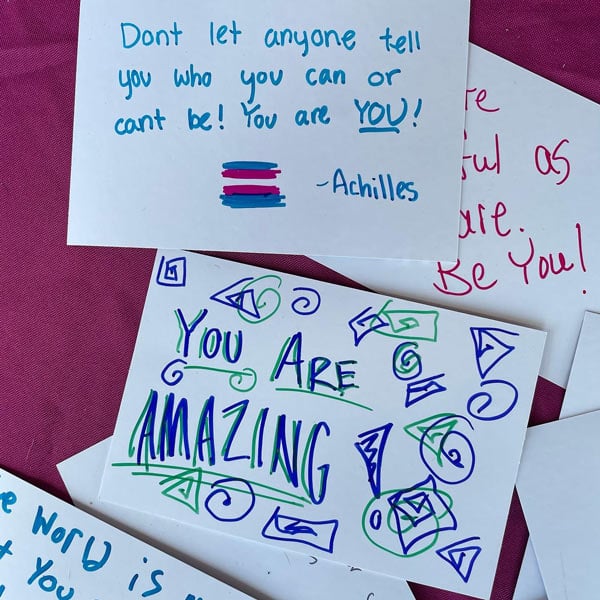 Dont let anyone tell
you who you can or
cant be! You are YOU!
-Achilles
as
Be You!
YOU ARE
AMAZING
World is
You